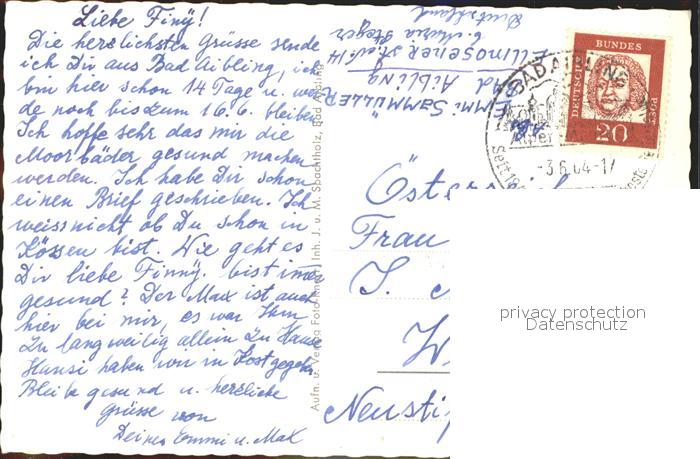 Liebe Finy!
Die herzlichsten Grüsse sende
ich Dir aus Bad Aibling, ich
bin hier schon 14 Tage u. wer
de noch bis zum 16.6. bleiben
Ich hoffe sehr das mir die
Moorbäder gesund machen
werden. Ich habe Dir schon
einen Brief geschrieben. Ich
weiss nicht ob Du schon in
Kössen bist. Wie geht es
Dir liebe Finny. bist immer
gesund? Der Max ist auch
hier bei mir, es war Ihm
zu langweilig allein zu Haus
Hansi haben wir in Kost gegeben
Bleibe gesund u. herzliche
Grüsse von
Deinen Emmi u. Max
Aufn. u. Verlag Foto Inh. J. u. M. Spachtholz, Bad Aibling
EMMI SAMMÜLLER
Bad Aibling
Ellmosener Str. 14
b. Maria Steger
Deutschland
BAD AIBLING
-3.6.64-17
DEUTSCHE BUNDESPOST
20
Öster
Frau
J.
W
Neustif
privacy protection
Datenschutz